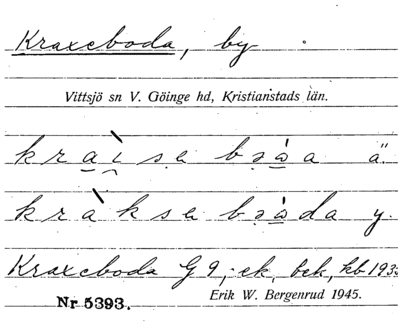 Kraxeboda, by
Vittsjö sn V. Göinge hd, Kristianstads län.
kraìse bəa ä.
kràkse bəda y.
Kraxeboda G 9,; ek, bek, kb 1935
Nr 5393. Erik W. Bergenrud 1945.